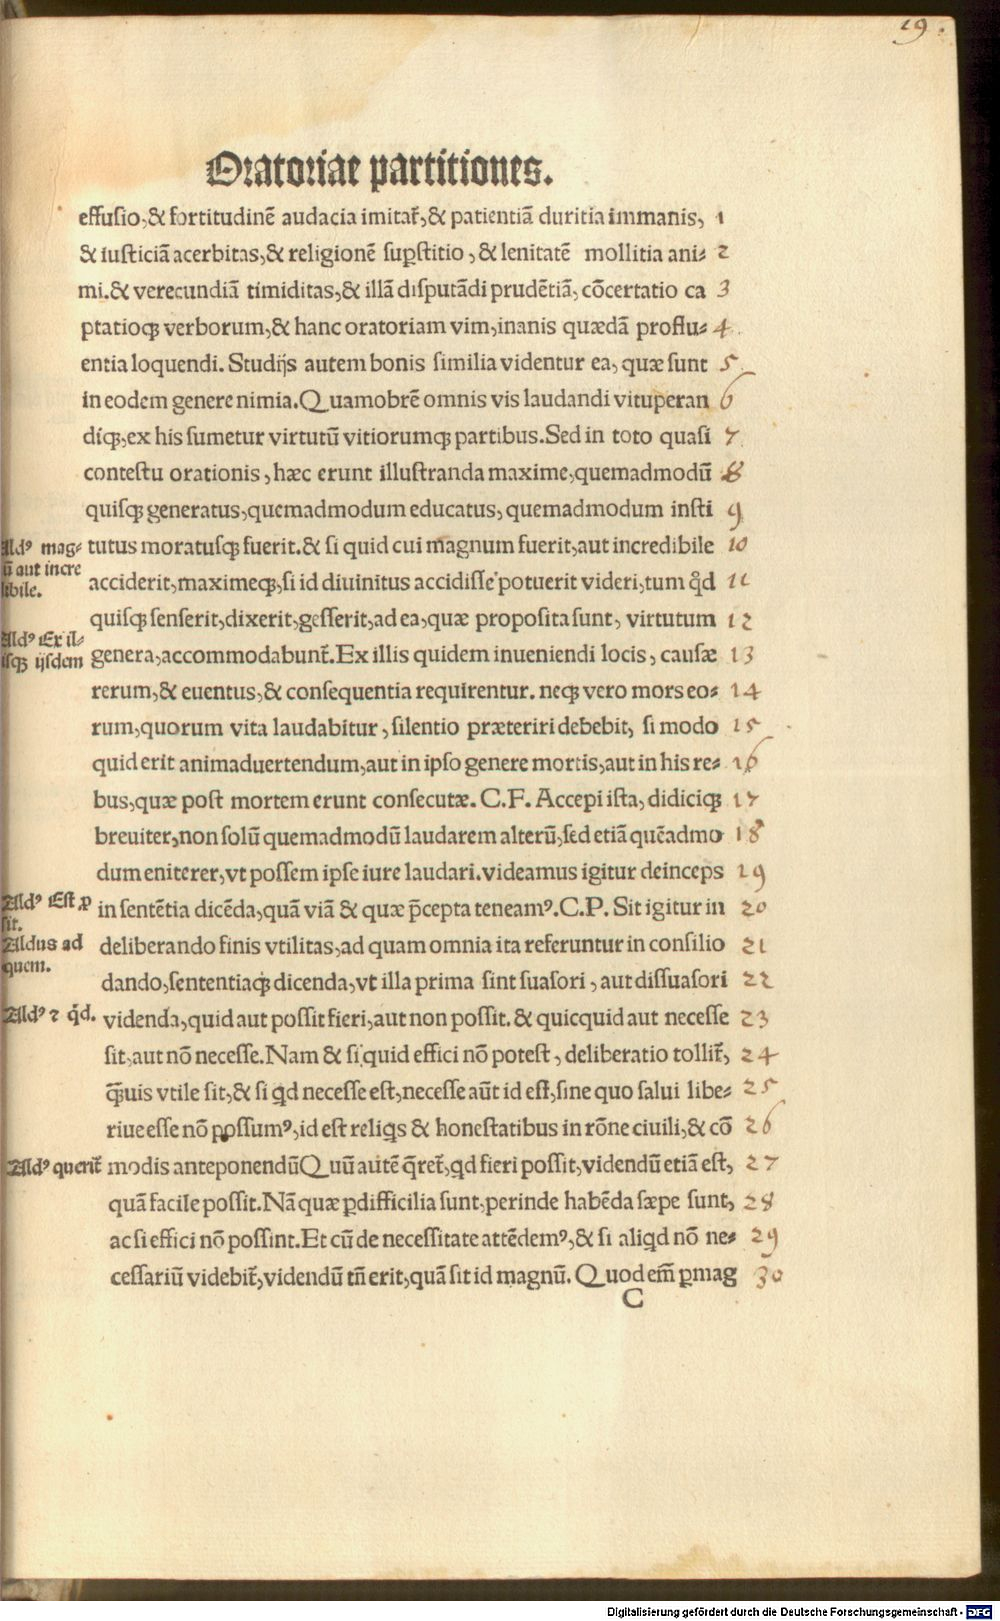 19.
Oratoriae partitiones.
effusio,& fortitudinē audacia imitat̄,& patientiā duritia immanis, 1
& iusticiā acerbitas,& religionē sup̱stitio, & lenitatē mollitia ani- 2
mi.& verecundiā timiditas,& illā disputādi prudētiā, cōcertatio ca 3
ptatioq; verborum,& hanc oratoriam vim,inanis quædā proflu- 4
entia loquendi. Studijs autem bonis similia videntur ea, quæ sunt 5
in eodem genere nimia. Quamobrē omnis vis laudandi vituperan 6
diq;,ex his sumetur virtutū vitiorumq; partibus. Sed in toto quasi 7
contestu orationis, hæc erunt illustranda maxime,quemadmodū 8
quisq; generatus,quemadmodum educatus, quemadmodum insti 9
Ald⁹ mag-
ū aut incre
libile.
tutus moratusq; fuerit.& si quid cui magnum fuerit,aut incredibile 10
acciderit,maximeq;,si id diuinitus accidisse potuerit videri,tum qd̄ 11
quisq; senserit,dixerit,gesserit,ad ea,quæ proposita sunt, virtutum 12
Ald⁹ Ex il-
isq; ijsdem
genera,accommodabunt̄. Ex illis quidem inueniendi locis, causæ 13
rerum,& euentus,& consequentia requirentur. neq; vero mors eo- 14
rum,quorum vita laudabitur, silentio præteriri debebit, si modo 15
quid erit animaduertendum,aut in ipso genere mortis,aut in his re- 16
bus,quæ post mortem erunt consecutæ. C.F. Accepi ista, didiciq; 17
breuiter,non solū quemadmodū laudarem alterū,sed etiā quēadmo 18
dum eniterer,vt possem ipse iure laudari.videamus igitur deinceps 19
Ald⁹ Est p̱
sit.
in sentētia dicēda,quā viā & quæ p̄cepta teneam⁹. C.P. Sit igitur in 20
Aldus ad
quem.
deliberando finis vtilitas,ad quam omnia ita referuntur in consilio 21
dando,sententiaq; dicenda,vt illa prima sint suasori, aut dissuasori 22
Ald⁹ ⁊ qd̄.
videnda,quid aut possit fieri,aut non possit.& quicquid aut necesse 23
sit,aut nō necesse. Nam & si quid effici nō potest, deliberatio tollit̄, 24
q̄uis vtile sit,& si qd necesse est,necesse aūt id est,sine quo salui libe- 25
riue esse nō possum⁹,id est reliqs & honestatibus in rōne ciuili,& cō 26
Ald⁹ querit̄
modis anteponendū Quū autē q̄ret̄,qd fieri possit,videndū etiā est, 27
quā facile possit. Nā quæ p̱difficilia sunt,perinde habēda sæpe sunt, 28
ac si effici nō possint. Et cū de necessitate attēdem⁹,& si aliqd nō ne- 29
cessariū videbit̄,videndū tn̄ erit,quā sit id magnū. Quod em̄ p̱mag 30
C
Digitalisierung gefördert durch die Deutsche Forschungsgemeinschaft - DFG